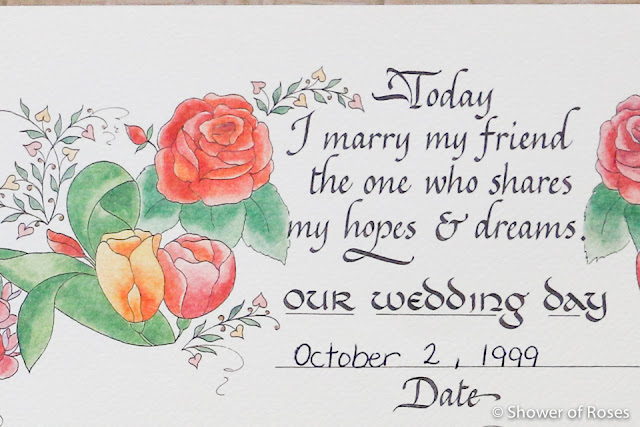 Today
I marry my friend
the one who shares
my hopes & dreams.
our wedding day
October 2, 1999
Date
© Shower of Roses